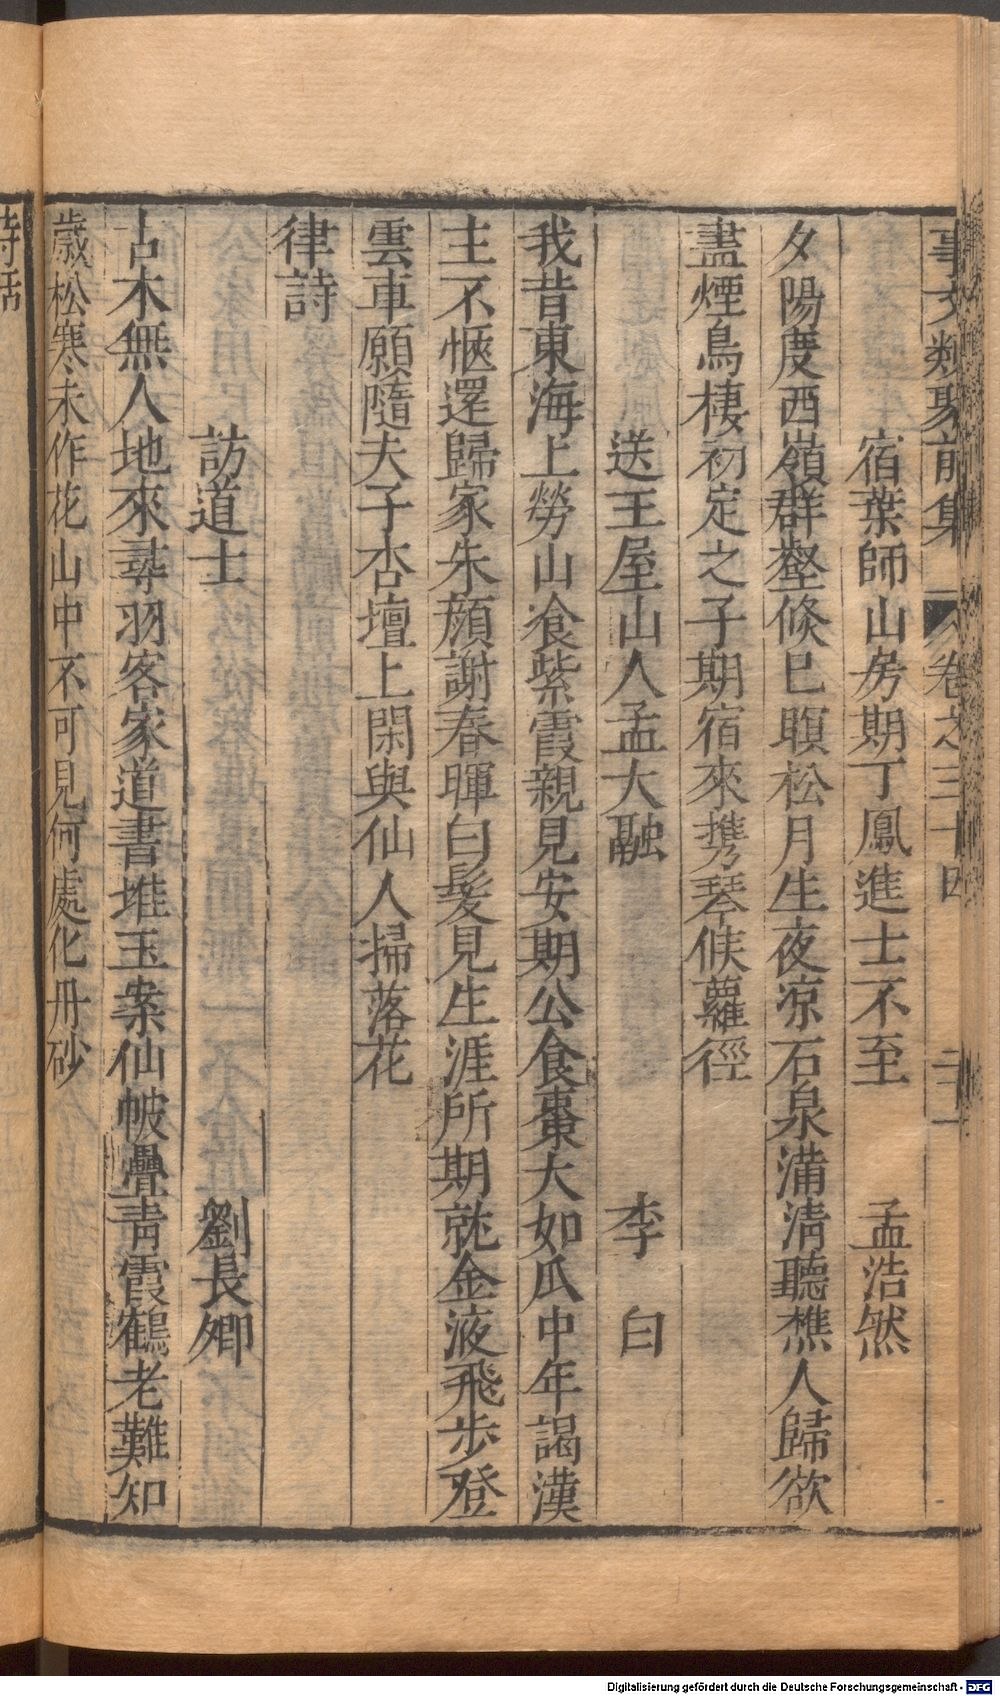 事文類聚前集 卷之三十四
宿葉師山房期丁鳳進士不至 孟浩然
夕陽度西嶺群壑倏已暝松月生夜凉石泉滿清聽樵人歸欲
盡煙鳥棲初定之子期宿來携琴候蘿徑
送王屋山人孟大融 李白
我昔東海上勞山飡紫霞親見安期公食棗大如瓜中年謁漢
主不愜還歸家朱顔謝春暉白髮見生涯所期就金液飛步登
雲車願隨夫子杏壇上閑與仙人掃落花
律詩
訪道士 劉長卿
古木無人地來尋羽客家道書堆玉案仙帔疊青霞鶴老難知
歲松寒未作花山中不可見何處化丹砂
詩話
Digitalisierung gefördert durch die Deutsche Forschungsgemeinschaft - DFG